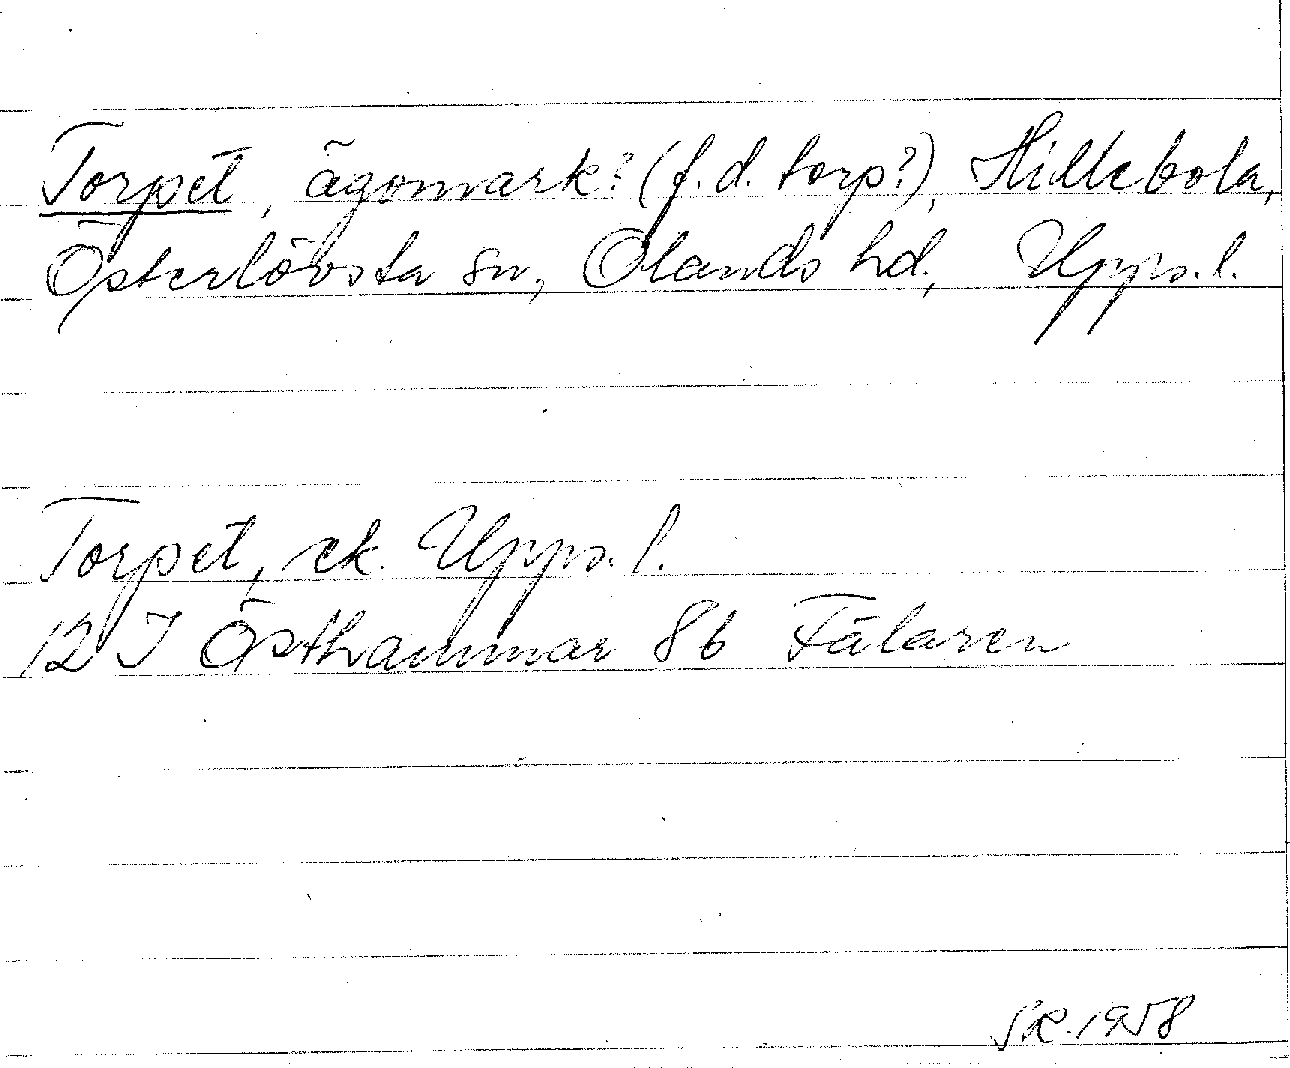 Torpet, ägomark? (f.d. torp?), Hillebola,
Österlövsta sn, Olands hd, Upps. l.
Torpet, ek. Upps. l.
12 I Östhammar 8b Fälaren
SR. 1958